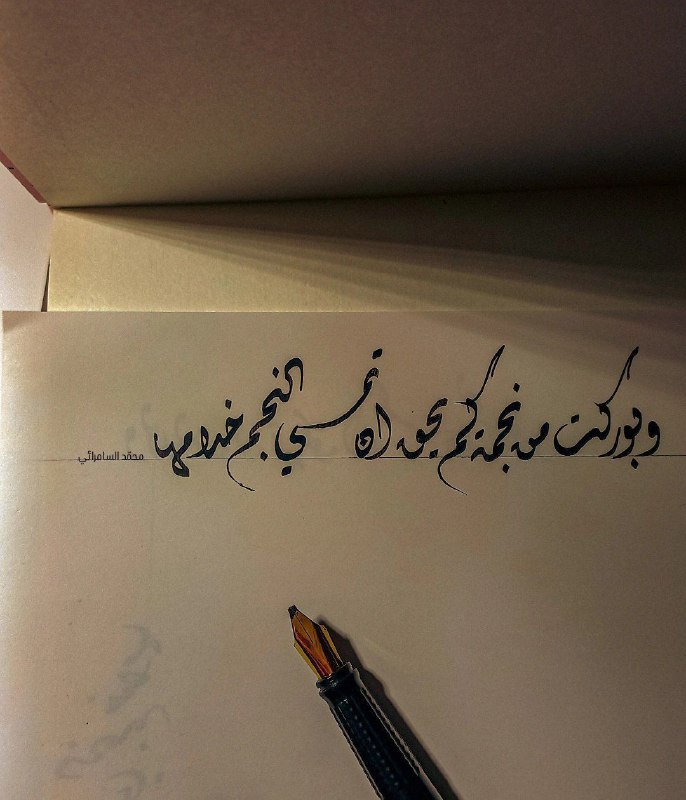 وبوركت من نجمة كم يحق ان تمسي النجم خدامها
محمد السامرائي